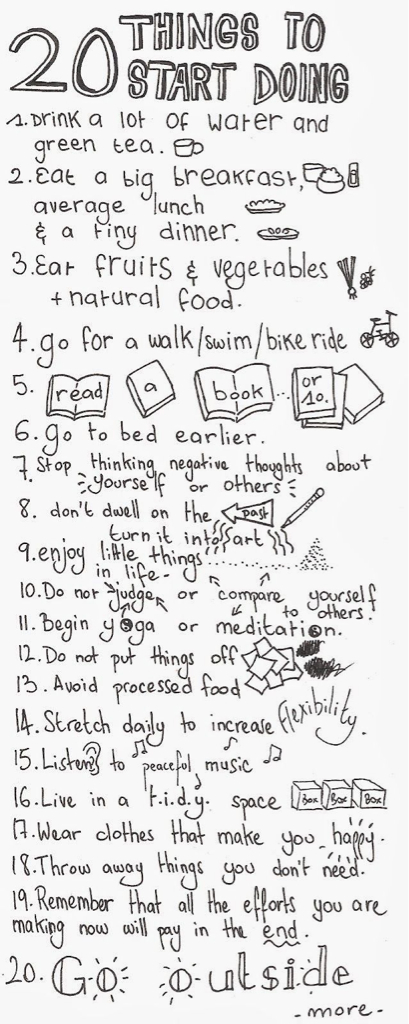 20 THINGS TO
START DOING
1. Drink a lot of water and
green tea.
2. Eat a big breakfast,
average lunch
& a tiny dinner.
3. Eat fruits & vegetables
+ natural food.
4. go for a walk/swim/bike ride
5. read a book... or 10.
6. go to bed earlier.
7. Stop thinking negative thoughts about
yourself or others
8. don't dwell on the past
turn it into art
9. enjoy little things
in life-
10. Do not judge or compare yourself
to others.
11. Begin yoga or meditation.
12. Do not put things off
13. Avoid processed food
14. Stretch daily to increase flexibility.
15. Listen to peaceful music
16. Live in a t.i.d.y. space Box Box Box
17. Wear clothes that make you happy.
18. Throw away things you don't need.
19. Remember that all the efforts you are
making now will pay in the end.
20. Go outside
-more-